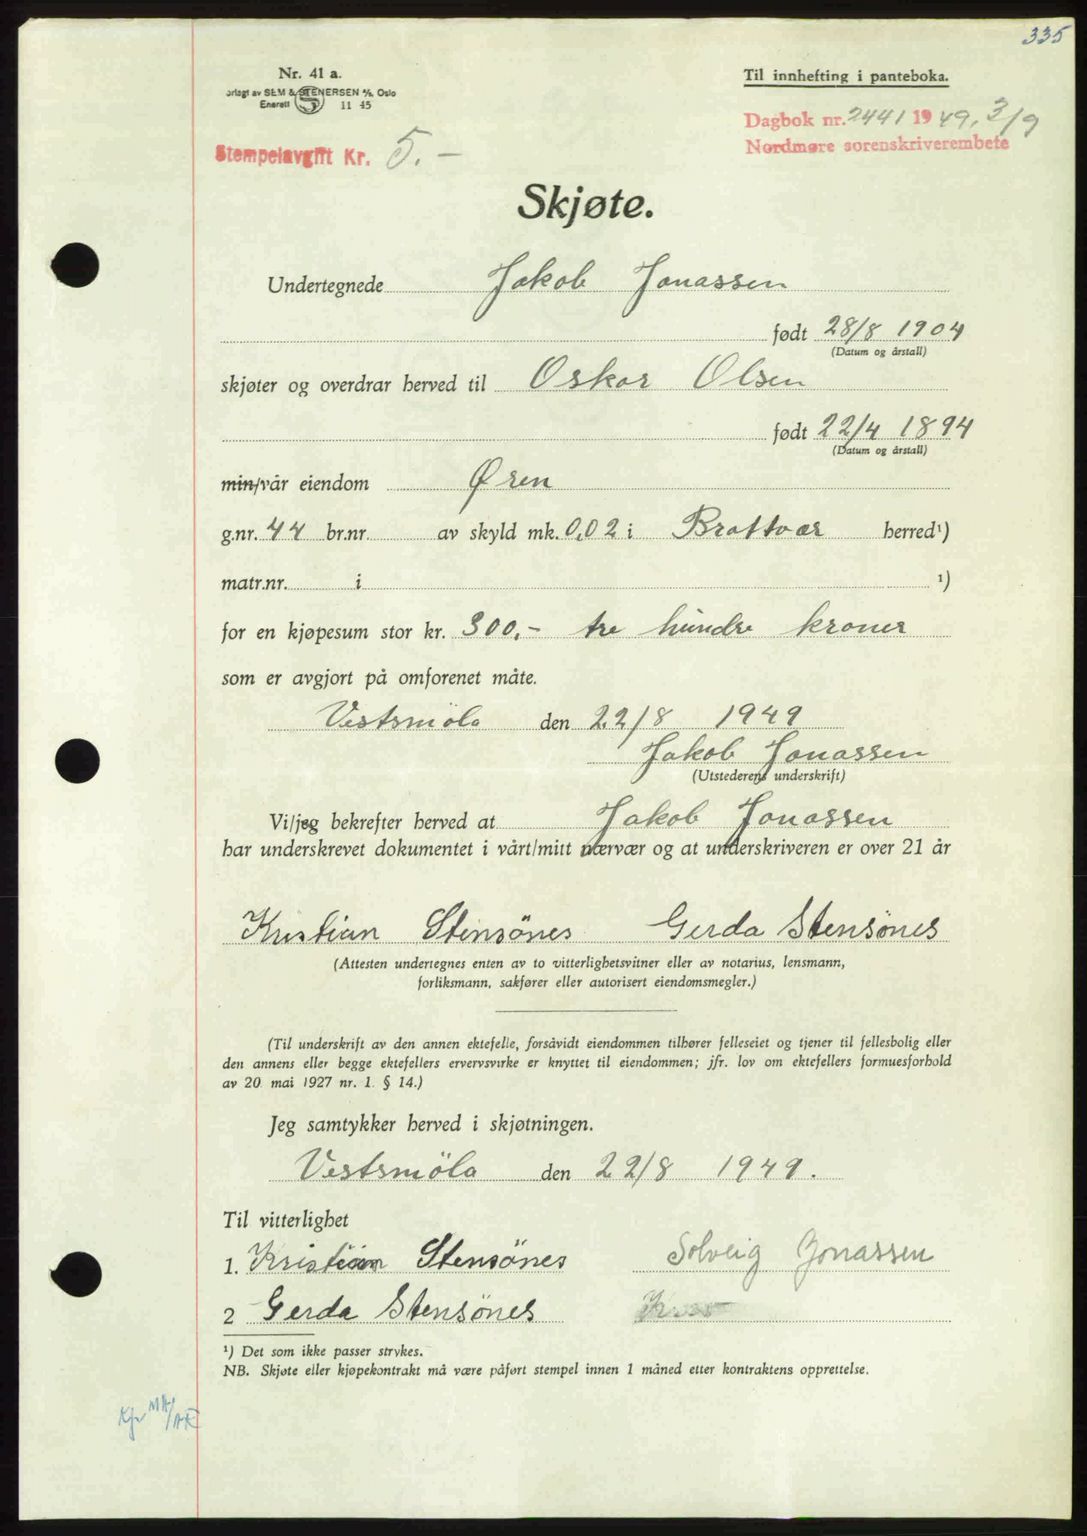 335
Nr. 41 a.
Til innhefting i panteboka.
orlagt av SEM & STENERSEN A/S, Oslo
Enerett S 11 45
Dagbok nr. 2441 1949, 3/9
Nordmøre sorenskriverembete
Stempelavgift Kr. 5.-
Skjøte.
Undertegnede Jakob Jonassen
født 28/8 1904
(Datum og årstall)
skjøter og overdrar herved til Oskar Olsen
født 22/4 1894
(Datum og årstall)
min/vår eiendom Øren
g.nr. 44 br.nr. av skyld mk. 0,02 i Brattvær herred¹)
matr.nr. i ¹)
for en kjøpesum stor kr. 300,- tre hundre kroner
som er avgjort på omforenet måte.
Vestsmöla den 22/8 1949
Jakob Jonassen
(Utstederens underskrift)
Vi/jeg bekrefter herved at Jakob Jonassen
har underskrevet dokumentet i vårt/mitt nærvær og at underskriveren er over 21 år
Kristian Stensönes Gerda Stensönes
(Attesten undertegnes enten av to vitterlighetsvitner eller av notarius, lensmann,
forliksmann, sakfører eller autorisert eiendomsmegler.)
(Til underskrift av den annen ektefelle, forsåvidt eiendommen tilhører felleseiet og tjener til fellesbolig eller
den annens eller begge ektefellers ervervsvirke er knyttet til eiendommen; jfr. lov om ektefellers formuesforhold
av 20 mai 1927 nr. 1. § 14.)
Jeg samtykker herved i skjøtningen.
Vestsmöla den 22/8 1949.
Til vitterlighet
1. Kristian Stensönes Solveig Jonassen
2 Gerda Stensönes
¹) Det som ikke passer strykes.
NB. Skjøte eller kjøpekontrakt må være påført stempel innen 1 måned etter kontraktens opprettelse.